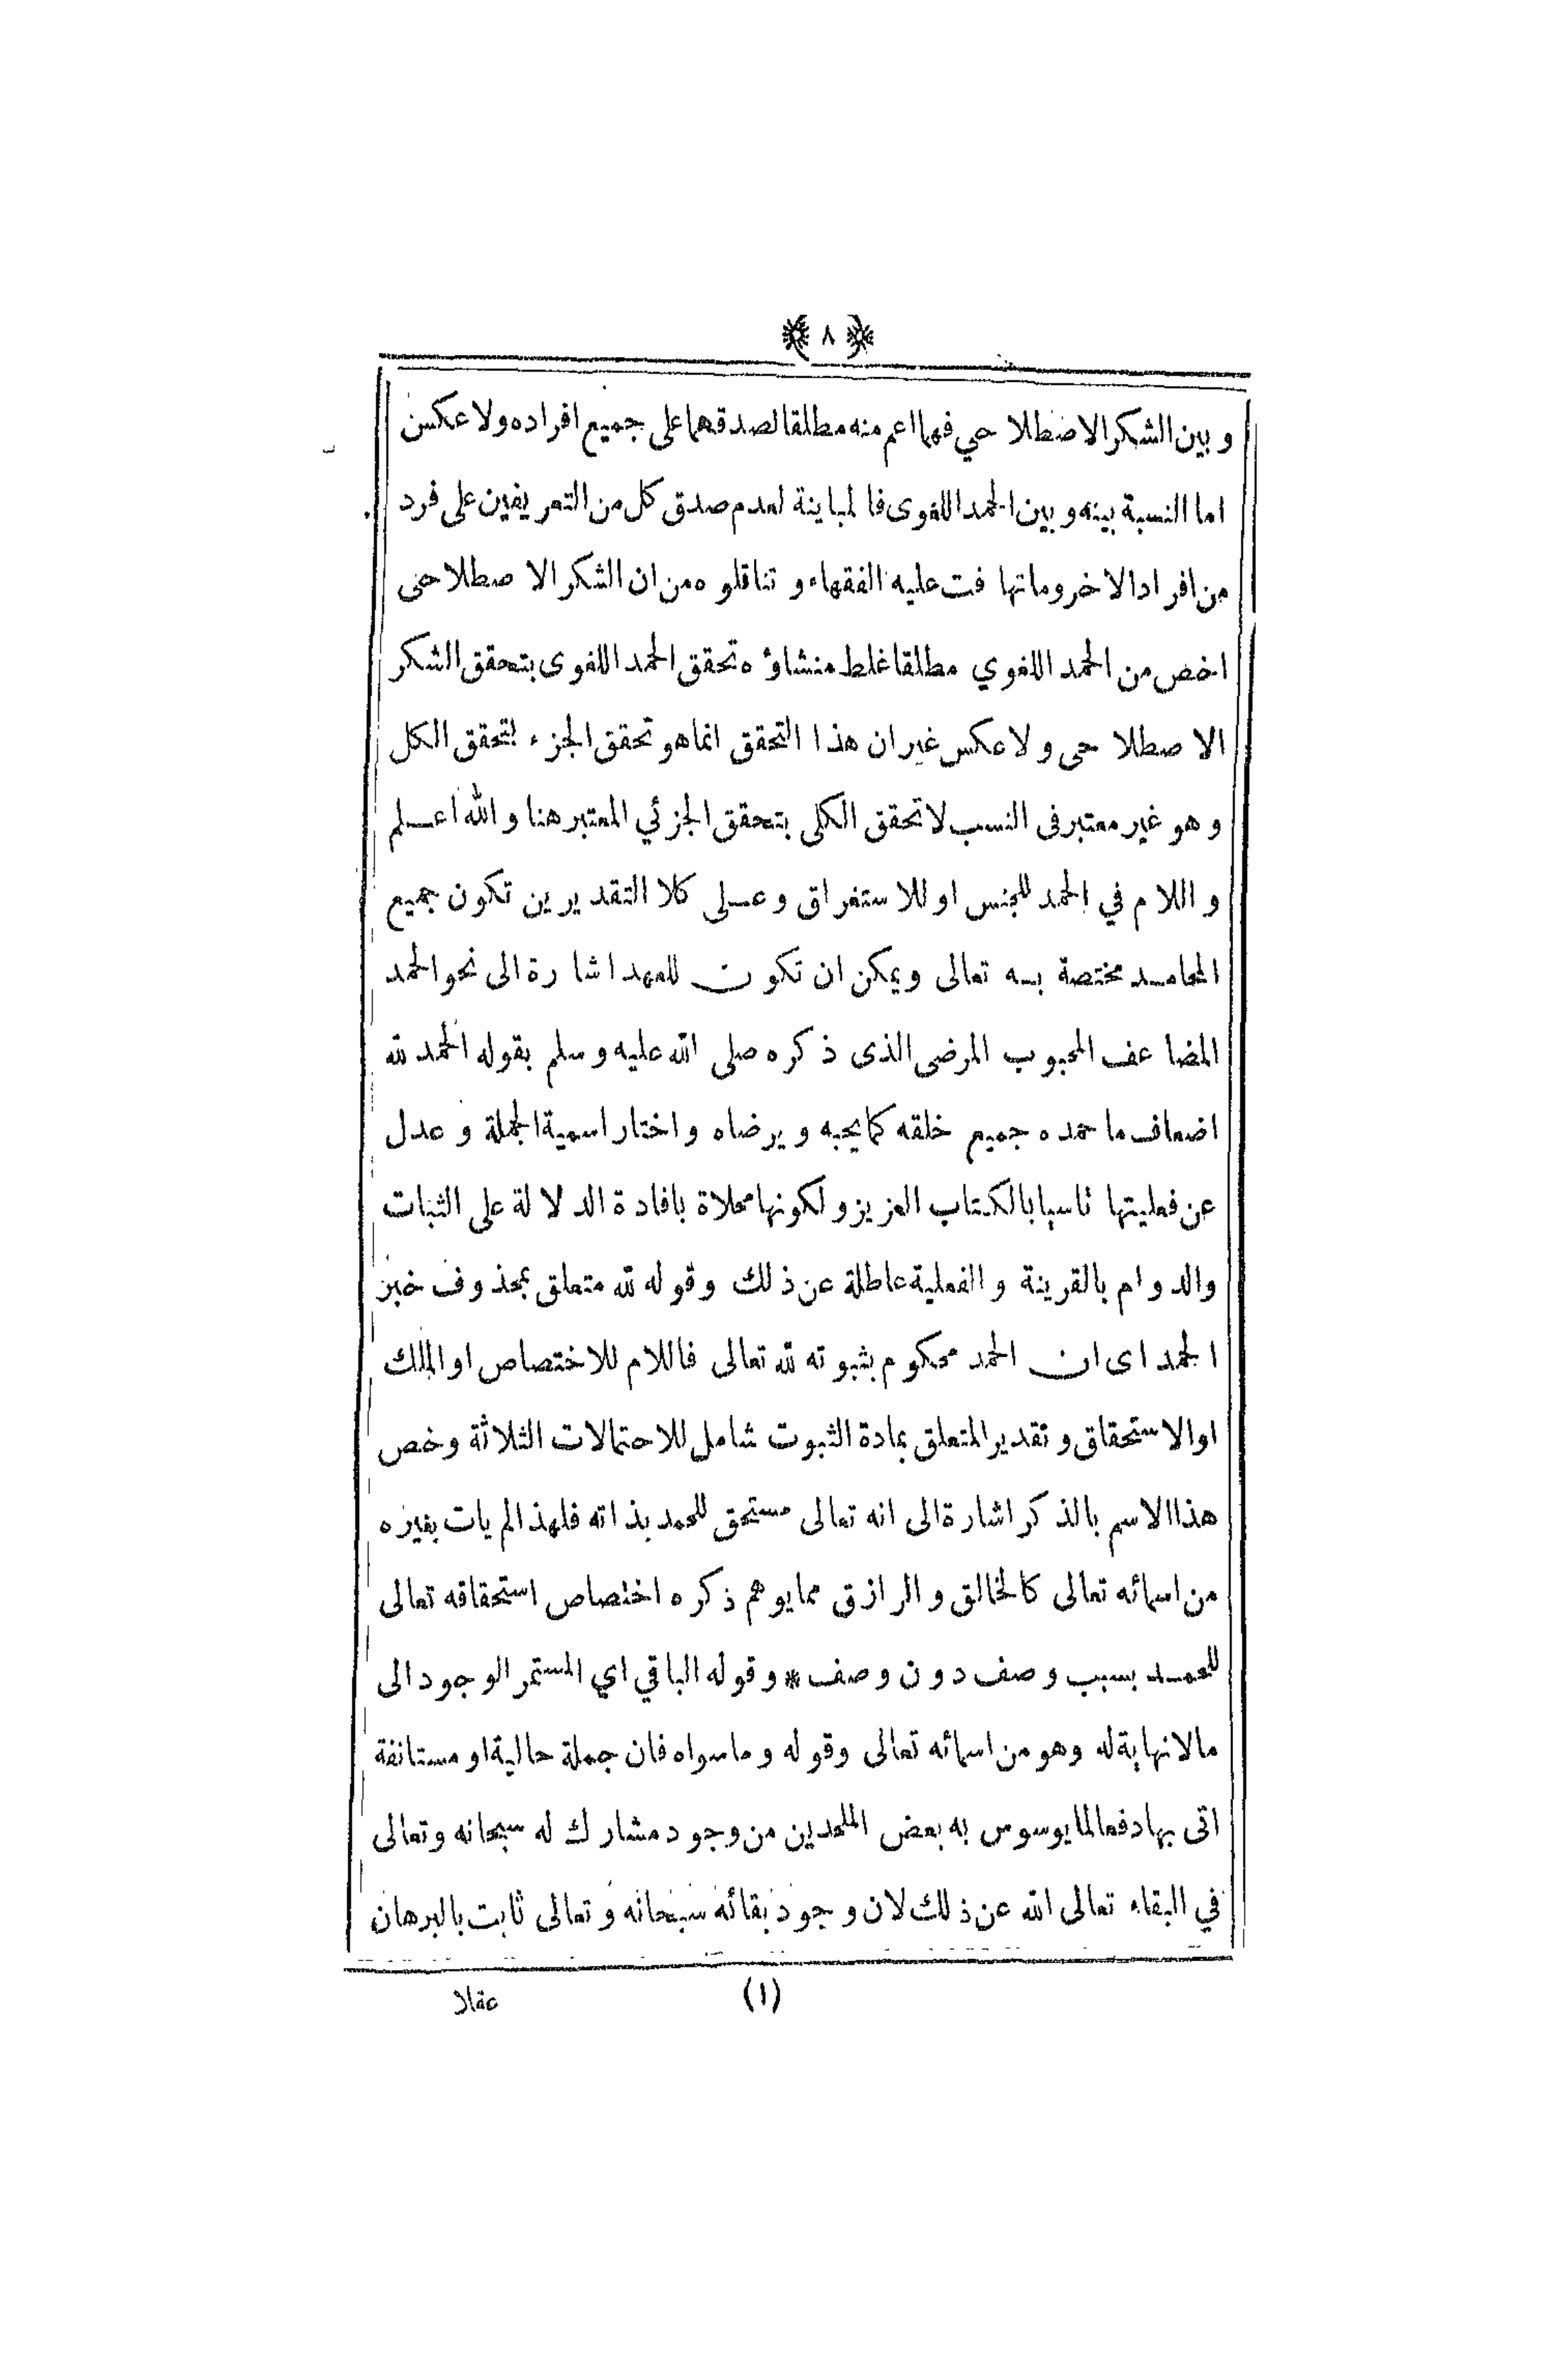 ﴿ ٨ ﴾
و بين الشكر الاصطلاحي فهما اعم منه مطلقا لصدقهما على جميع افراده ولا عكس
اما النسبة بينه و بين الحمد اللغوى فالمباينة لعدم صدق كل من التعريفين على فرد
من افراد الاخر وما تهافت عليه الفقهاء و تناقلوه من ان الشكر الاصطلاحى
اخص من الحمد اللغوي مطلقا غلط منشاؤه تحقق الحمد اللغوى بتحقق الشكر
الاصطلاحى و لا عكس غير ان هذا التحقق انما هو تحقق الجزء بتحقق الكل
و هو غير معتبر فى النسب لا تحقق الكلى بتحقق الجزئي المعتبر هنا و الله اعلم
و اللام في الحمد للجنس او للاستغراق و على كلا التقديرين تكون جميع
المحامد مختصة به تعالى ويمكن ان تكون للعهد اشارة الى نحو الحمد
المضاعف المحبوب المرضى الذى ذكره صلى الله عليه و سلم بقوله الحمد لله
اضعاف ما حمده جميع خلقه كما يحبه و يرضاه و اختار اسمية الجملة و عدل
عن فعليتها تاسيا بالكتاب العزيز و لكونها محلاة بافادة الدلالة على الثبات
والدوام بالقرينة و الفعلية عاطلة عن ذلك و قوله لله متعلق بمحذوف خبر
الحمد اى ان الحمد محكوم بثبوته لله تعالى فاللام للاختصاص او الملك
او الاستحقاق و تقدير المتعلق بمادة الثبوت شامل للاحتمالات الثلاثة و خص
هذا الاسم بالذكر اشارة الى انه تعالى مستحق للحمد بذاته فلهذا لم يات بغيره
من اسمائه تعالى كالخالق و الرازق مما يوهم ذكره اختصاص استحقاقه تعالى
للحمد بسبب وصف دون وصف * و قوله الباقي اي المستمر الوجود الى
مالا نهاية له وهو من اسمائه تعالى وقوله و ما سواه فان جملة حالية او مستانفة
اتى بها دفعا لما يوسوس به بعض الملحدين من وجود مشارك له سبحانه وتعالى
في البقاء تعالى الله عن ذلك لان وجود بقائه سبحانه و تعالى ثابت بالبرهان
(١)
عقلا